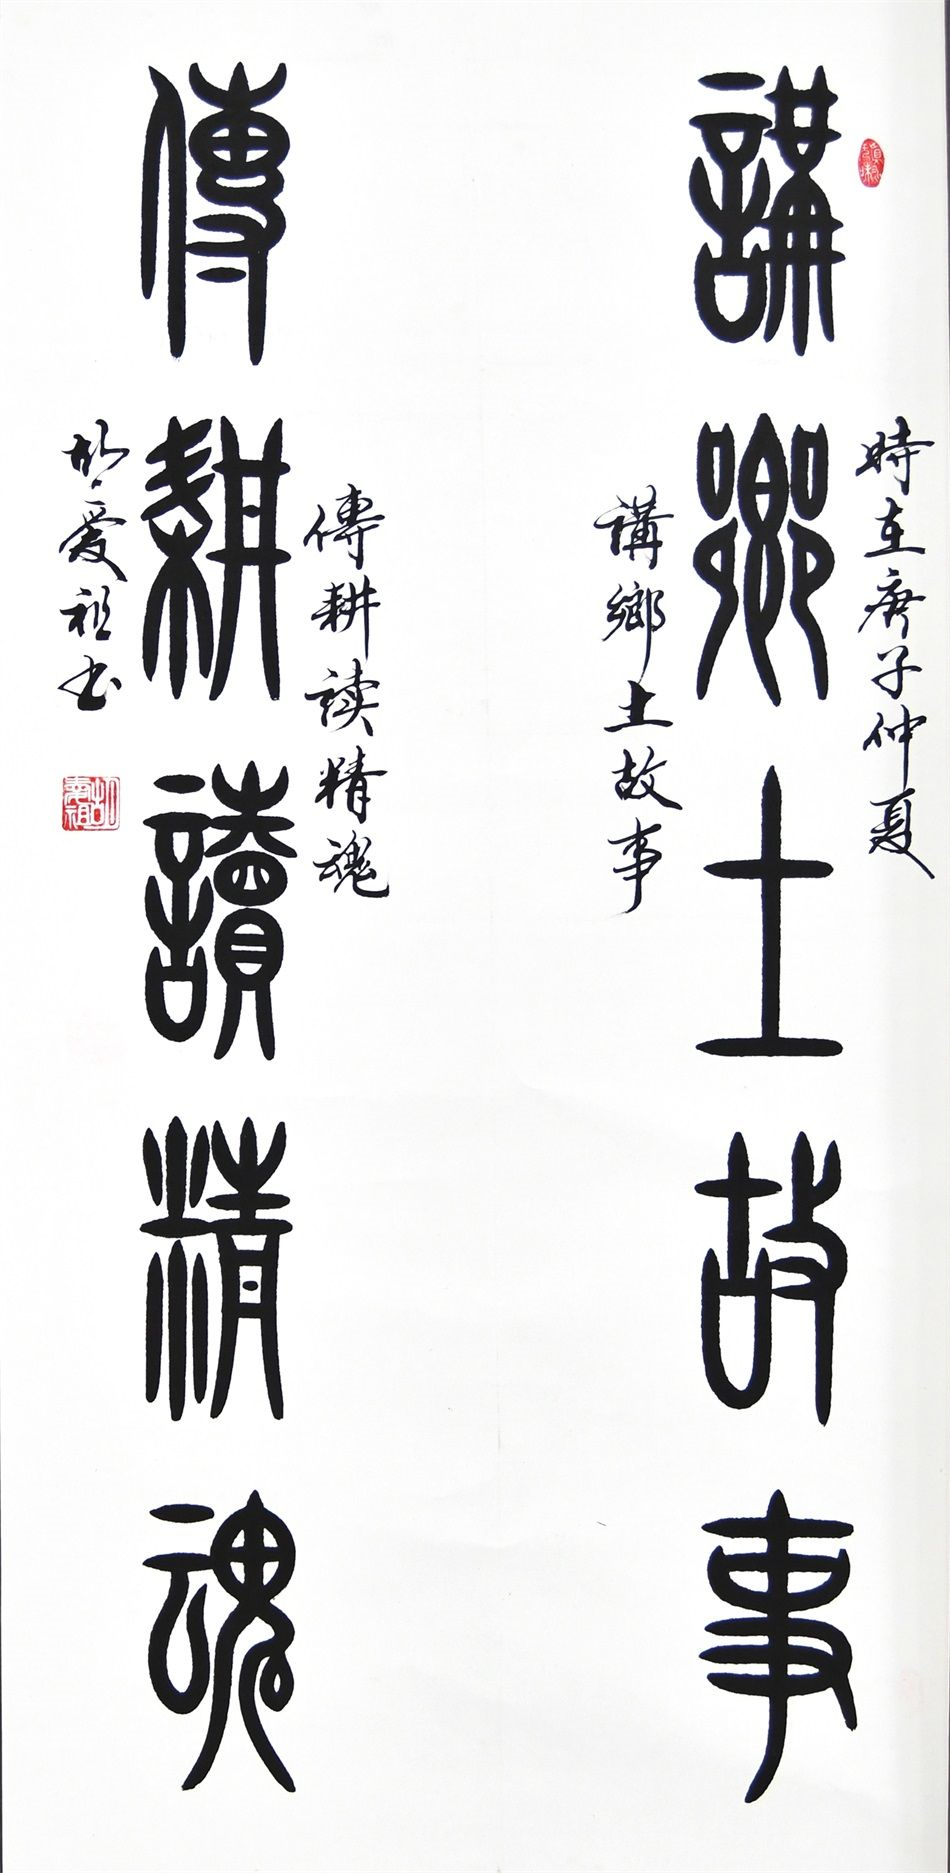 時在庚子仲夏
講鄉土故事
講鄉土故事
傳耕读精魂
傳耕讀精魂
胡爱祖书
胡愛祖